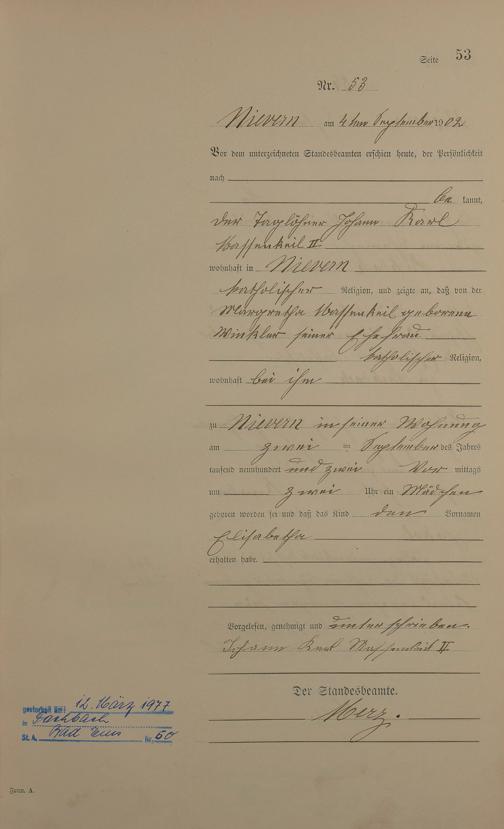 Seite 53
Nr. 53
Nievern am 4ten September 1902
Vor dem unterzeichneten Standesbeamten erschien heute, der Persönlichkeit
nach
be kannt,
der Taglöhner Johann Karl
Wassenkeil II
wohnhaft in Nievern
katholischer Religion, und zeigte an, daß von der
Margretha Wassenkeil geborene
Winkler seiner Ehefrau
katholischer Religion,
wohnhaft bei ihm
zu Nievern in seiner Wohnung
am zwei = September des Jahres
tausend neunhundert und zwei Vor mittags
um zwei Uhr ein Mädchen
geboren worden sei und daß das Kind den Vornamen
Elisabetha
erhalten habe.
Vorgelesen, genehmigt und unterschrieben.
Johann Karl Wassenkeil II
Der Standesbeamte.
Merz.
gestorben am: 12. März 1977
in Fachbach
St. A. Bad Ems Nr. 50
Form. A.